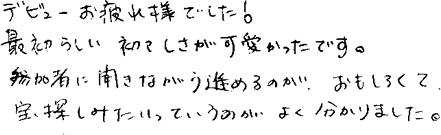 デビューお疲れ様でした!
最初らしい初々しさが可愛かったです。
参加者に聞きながら進めるのが、おもしろくて、
宝探しみたいっていうのがよく分かりました。